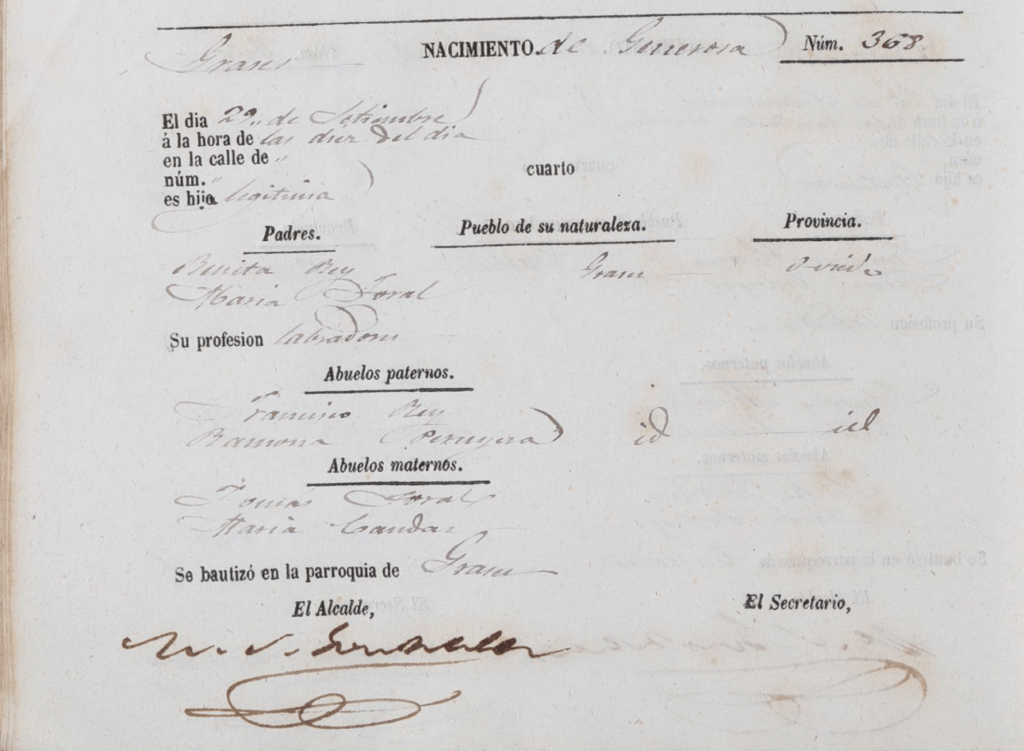 Granes NACIMIENTO. de Generosa Núm. 368.
El dia 29.. de Setiembre
á la hora de las diez del dia
en la calle de "
núm. " cuarto
es hija legitima
Padres. Pueblo de su naturaleza. Provincia.
Benito Rey Oviedo
Maria Toral
Su profesion labradores
Abuelos paternos.
Francisco Rey
Ramona id id
Abuelos maternos.
Tomás Toral
Maria
Se bautizó en la parroquia de
El Alcalde, El Secretario,